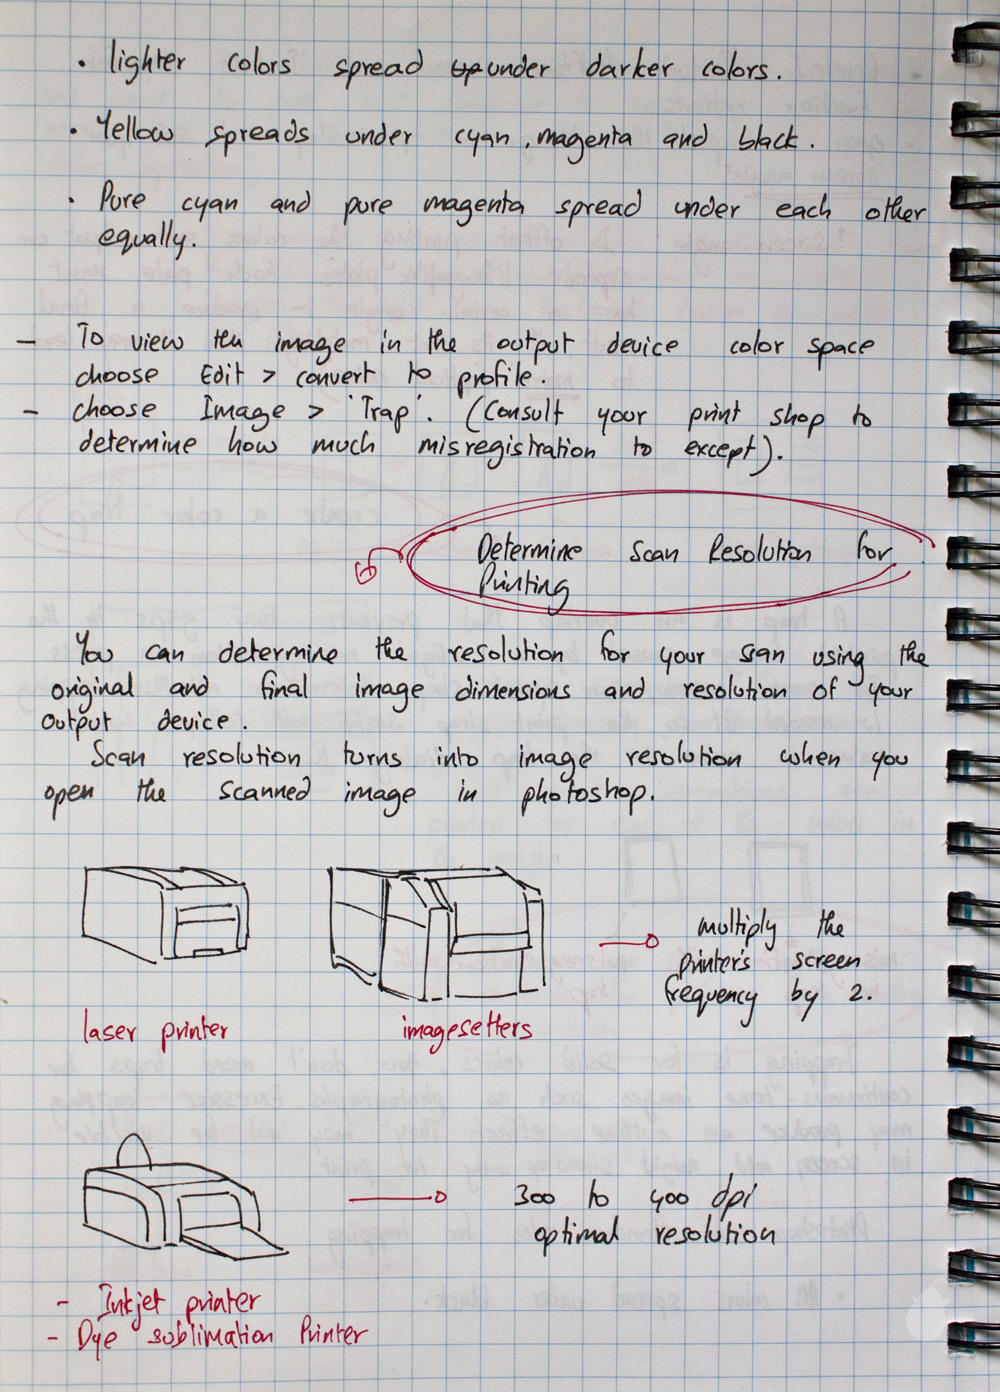 • lighter colors spread under darker colors.
• Yellow spreads under cyan, magenta and black.
• Pure cyan and pure magenta spread under each other
equally.
– To view the image in the output device color space
choose Edit > convert to profile.
– choose Image > 'Trap'. (Consult your print shop to
determine how much misregistration to except).
Determine Scan Resolution for
Printing
You can determine the resolution for your scan using the
original and final image dimensions and resolution of your
output device.
Scan resolution turns into image resolution when you
open the scanned image in photoshop.
multiply the
printer's screen
frequency by 2.
laser printer
imagesetters
300 to 400 dpi
optimal resolution
- Inkjet printer
- Dye sublimation Printer